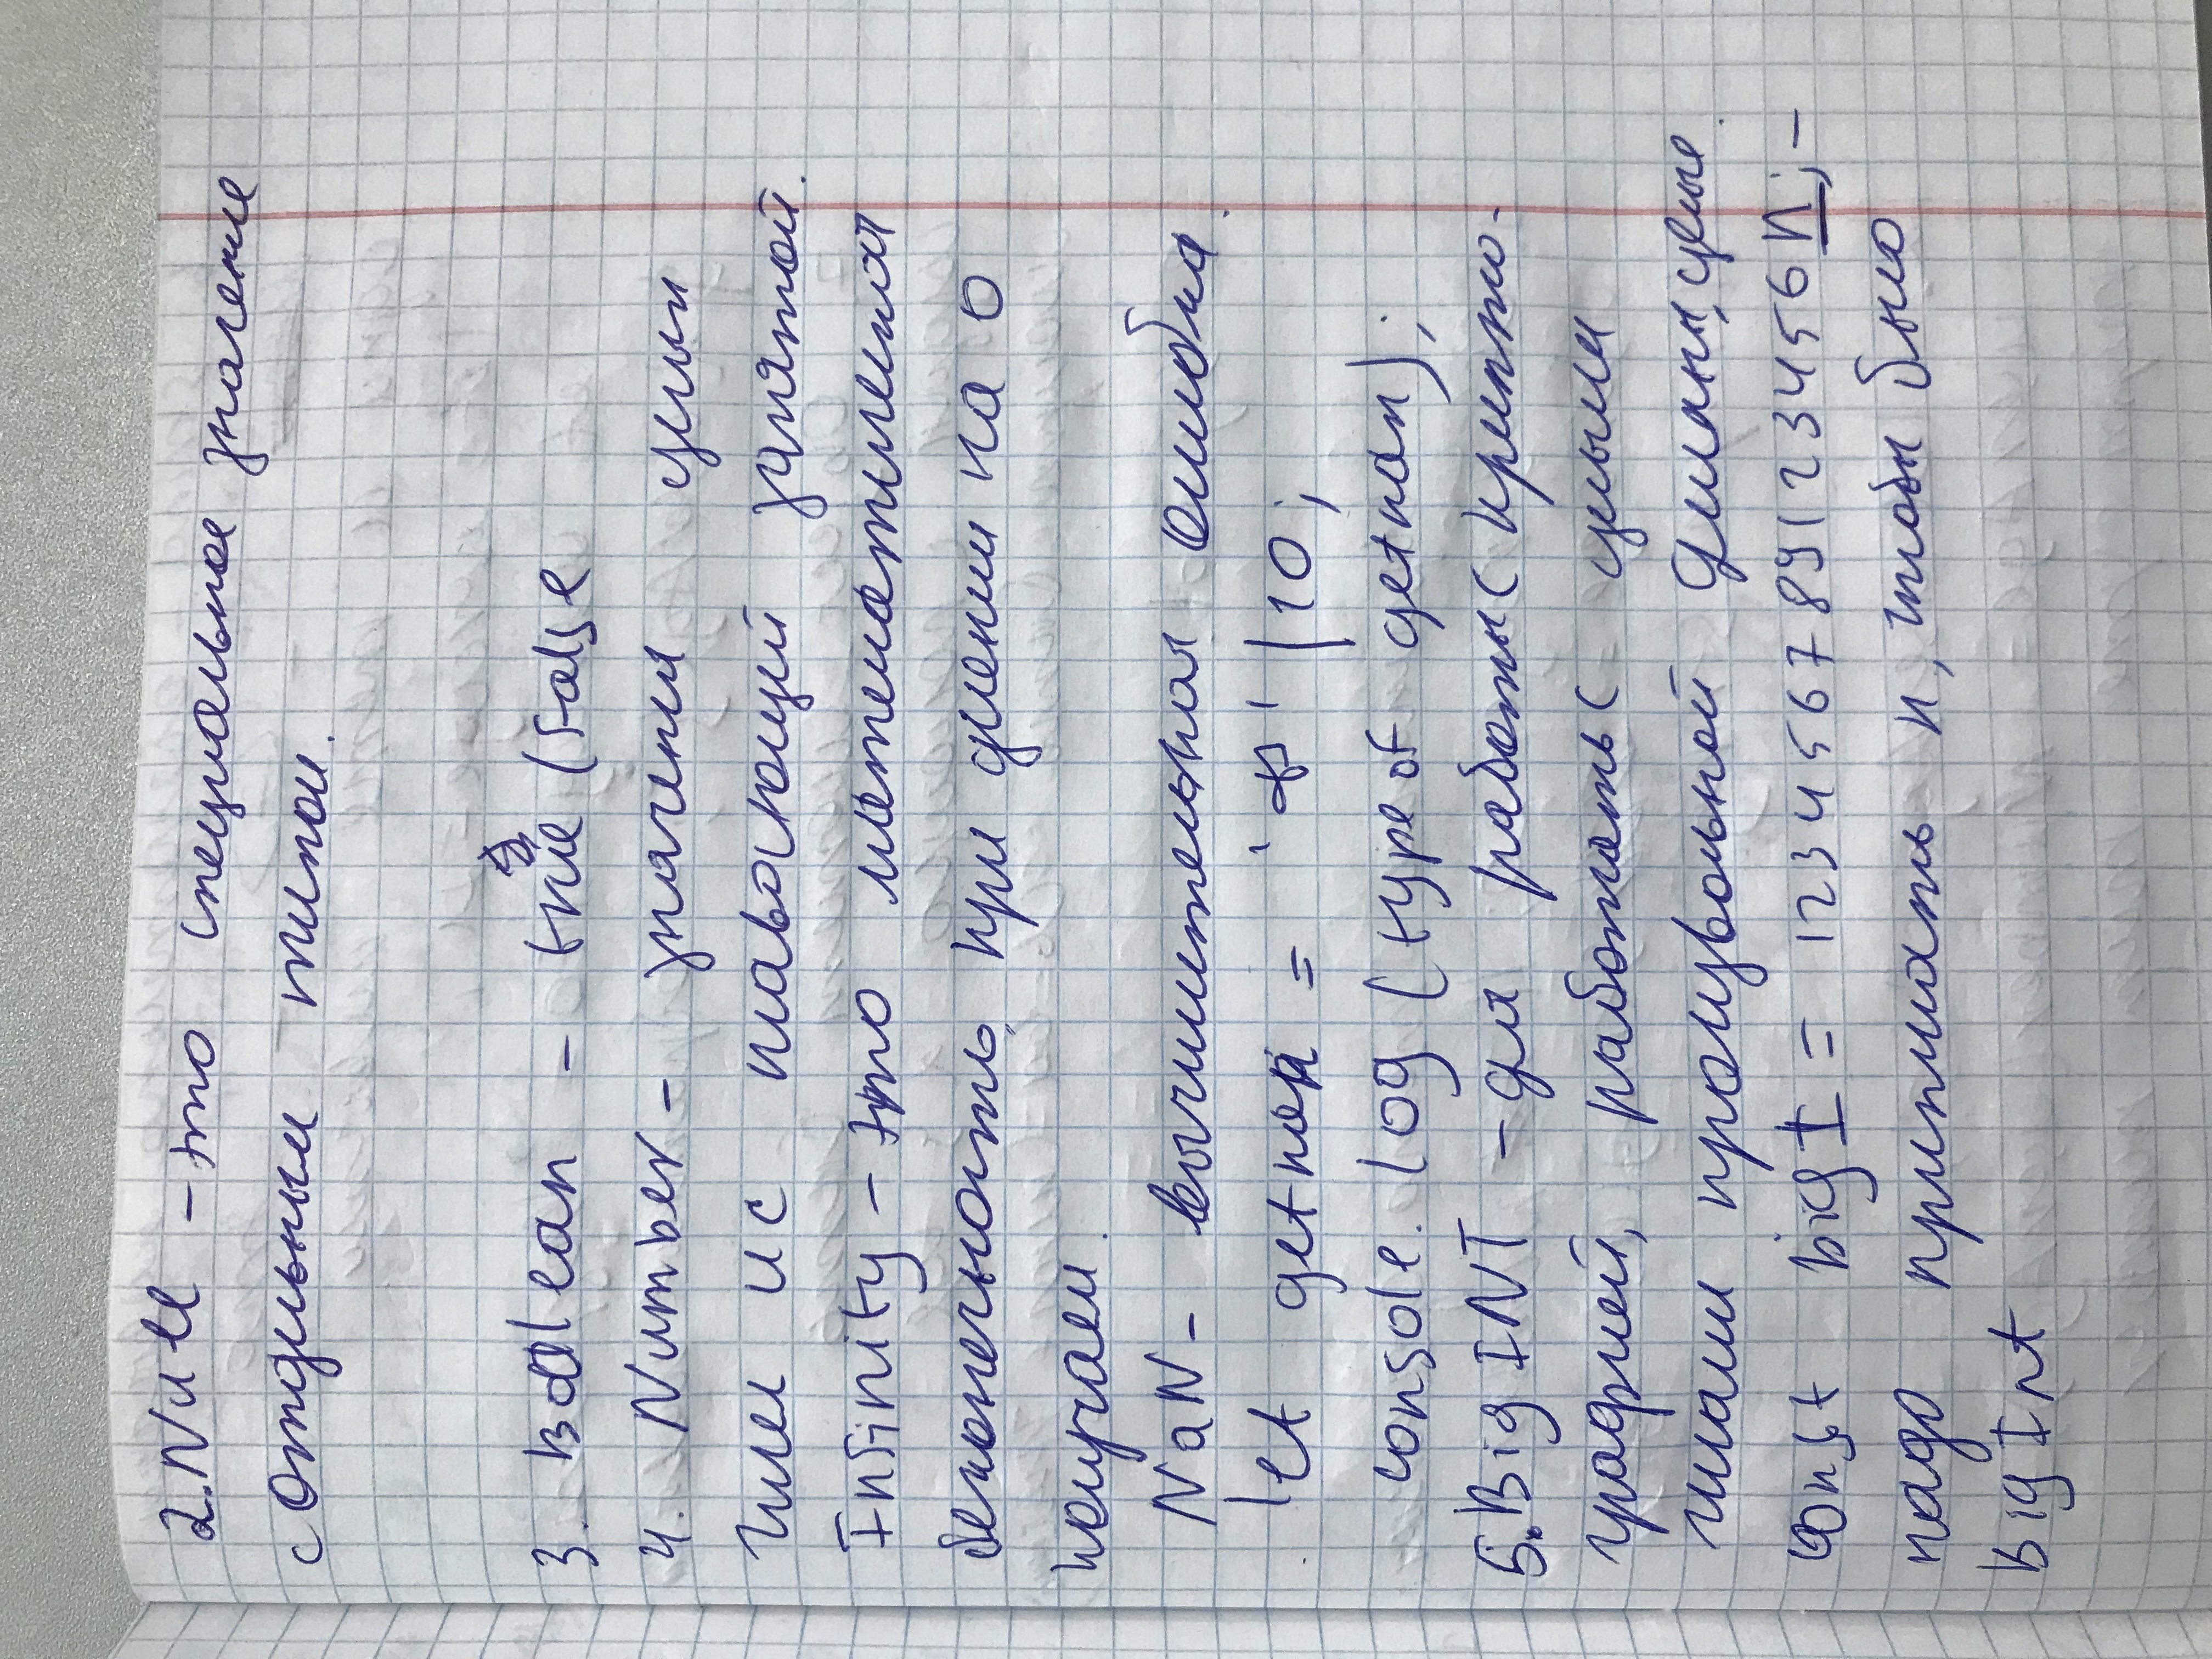 2. Null – это специальное значение
с отдельным типом.
3. Boolean – true (false
4. Number – значения целых
чисел и с плавающей запятой.
Infinity – это математическая
бесконечность, при делении на 0
получаем.
NaN – вычислительная ошибка.
let getnan = ' ' / 10;
console.log (typeof getnan);
5. BigINT – для работы с крипто-
графией, работать с целыми
числами произвольной длины, целые.
const bigI = 123456789123456n; –
надо приписать n, чтобы было
BigInt